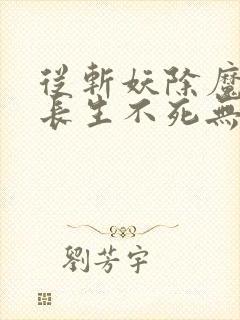 從斬妖除魔
長生不死無
劉芳宇